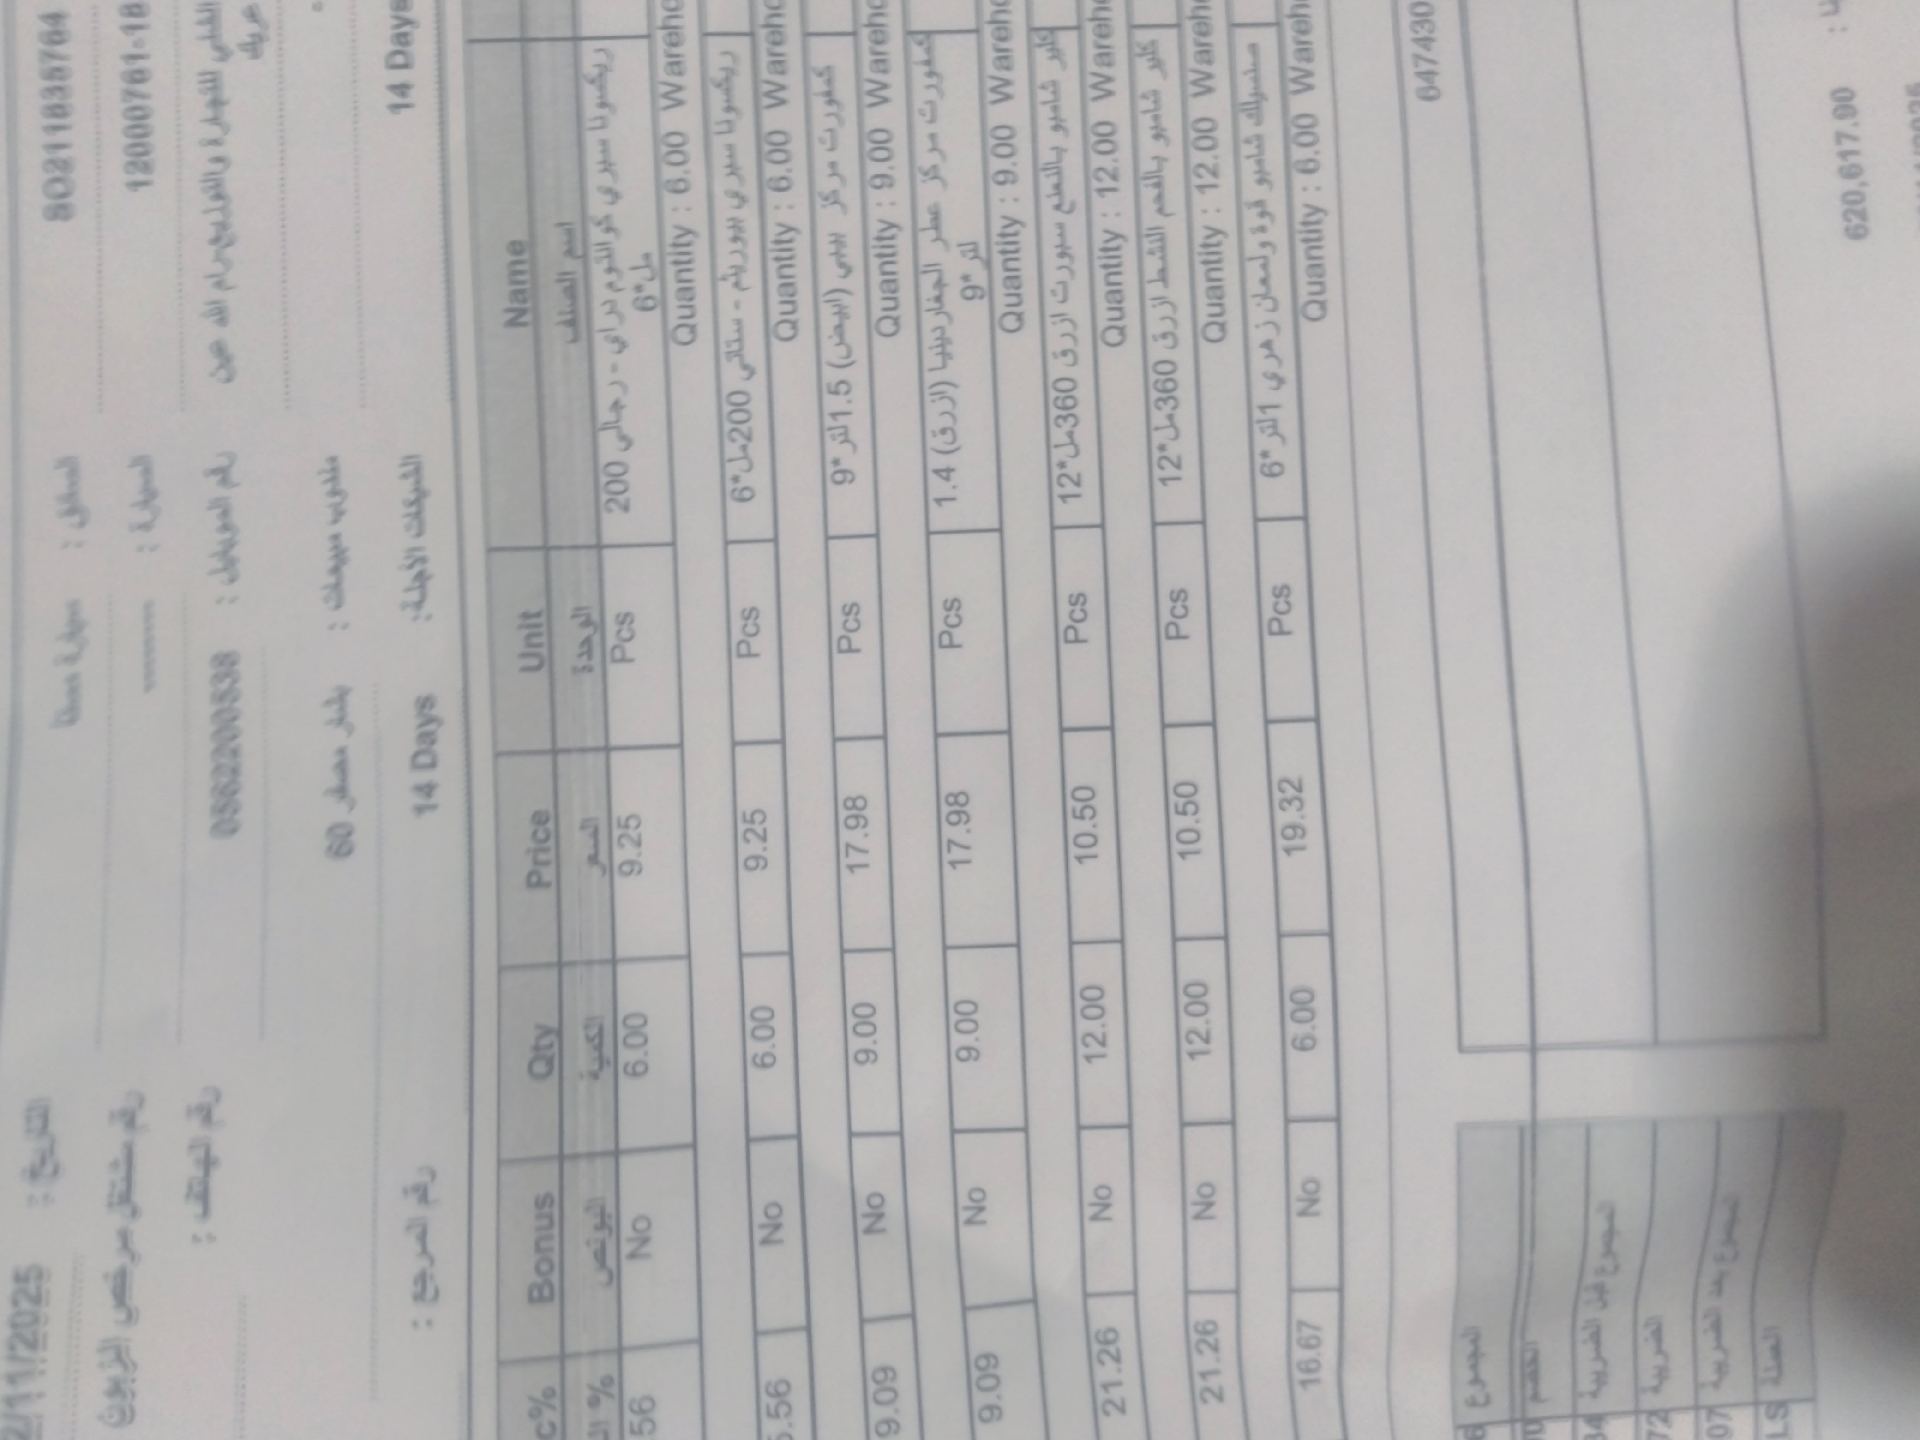 SO211835764
120000761-18
رقم الموبايل : 0562200538
مندوب مبيعات :
60
الشيكات الآجلة: 14 Days
14 Days
2/11/2025 التاريخ :
رقم مشتغل مرخص الزبون
رقم الهاتف :
رقم المرجع :
Name Unit Price Qty Bonus c%
اسم الصنف الوحدة السعر الكمية البونص %
ريكسونا سبري كوانتوم دراي - رجالي 200 Pcs 9.25 6.00 No 56
مل*6
Quantity : 6.00 Wareho
ريكسونا سبري بيوريثم - ستاتي 200مل*6 Pcs 9.25 6.00 No 5.56
Quantity : 6.00 Wareho
كمفورت مركز بيبي (ابيض) 1.5لتر*9 Pcs 17.98 9.00 No 9.09
Quantity : 9.00 Wareho
كمفورت مركز عطر الجاردينيا (ازرق) 1.4 Pcs 17.98 9.00 No 9.09
لتر*9
Quantity : 9.00 Wareho
كلير شامبو بالنعنع سبورت ازرق 360مل*12 Pcs 10.50 12.00 No 21.26
Quantity : 12.00 Wareho
كلير شامبو بالفحم النشط ازرق 360مل*12 Pcs 10.50 12.00 No 21.26
Quantity : 12.00 Wareho
صنسلك شامبو قوة ولمعان زهري 1لتر*6 Pcs 19.32 6.00 No 16.67
Quantity : 6.00 Wareho
647430
المجموع
الخصم
المجموع قبل الضريبة
الضريبة 72
المجموع بعد الضريبة 07
العملة LS
620,617.90